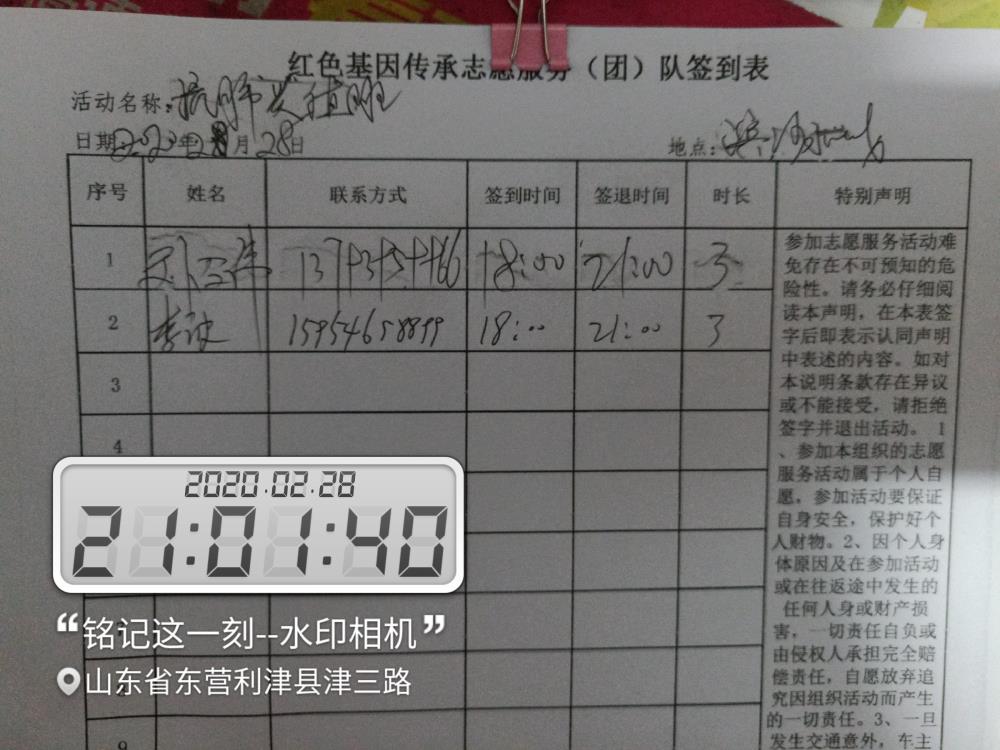 红色基因传承志愿服务（团）队签到表
活动名称：
日期：2020年2月28日
地点：
序号 姓名 联系方式 签到时间 签退时间 时长 特别声明
1 18:00 21:00 3
2 李波 15954658899 18:00 21:00 3
3
4
9
参加志愿服务活动难
免存在不可预知的危
险性。请务必仔细阅
读本声明，在本表签
字后即表示认同声明
中表述的内容。如对
本说明条款存在异议
或不能接受，请拒绝
签字并退出活动。 1
、参加本组织的志愿
服务活动属于个人自
愿，参加活动要保证
自身安全，保护好个
人财物。2、因个人身
体原因及在参加活动
或在往返途中发生的
任何人身或财产损
害，一切责任自负或
由侵权人承担完全赔
偿责任，自愿放弃追
究因组织活动而产生
的一切责任。3、一旦
发生交通意外，车主
2020.02.28
21:01:40
“铭记这一刻--水印相机”
山东省东营利津县津三路